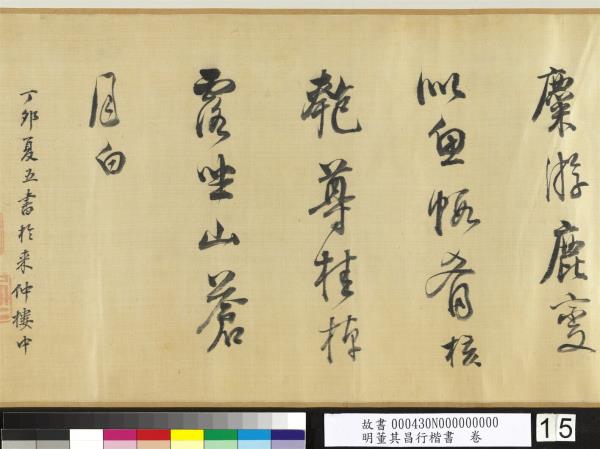 麋游鹿变
似魚肴核
匏尊桂棹
露坐山蒼
月白
丁卯夏五書於来仲樓中
故書 000430N000000000
明董其昌行楷書 卷
15